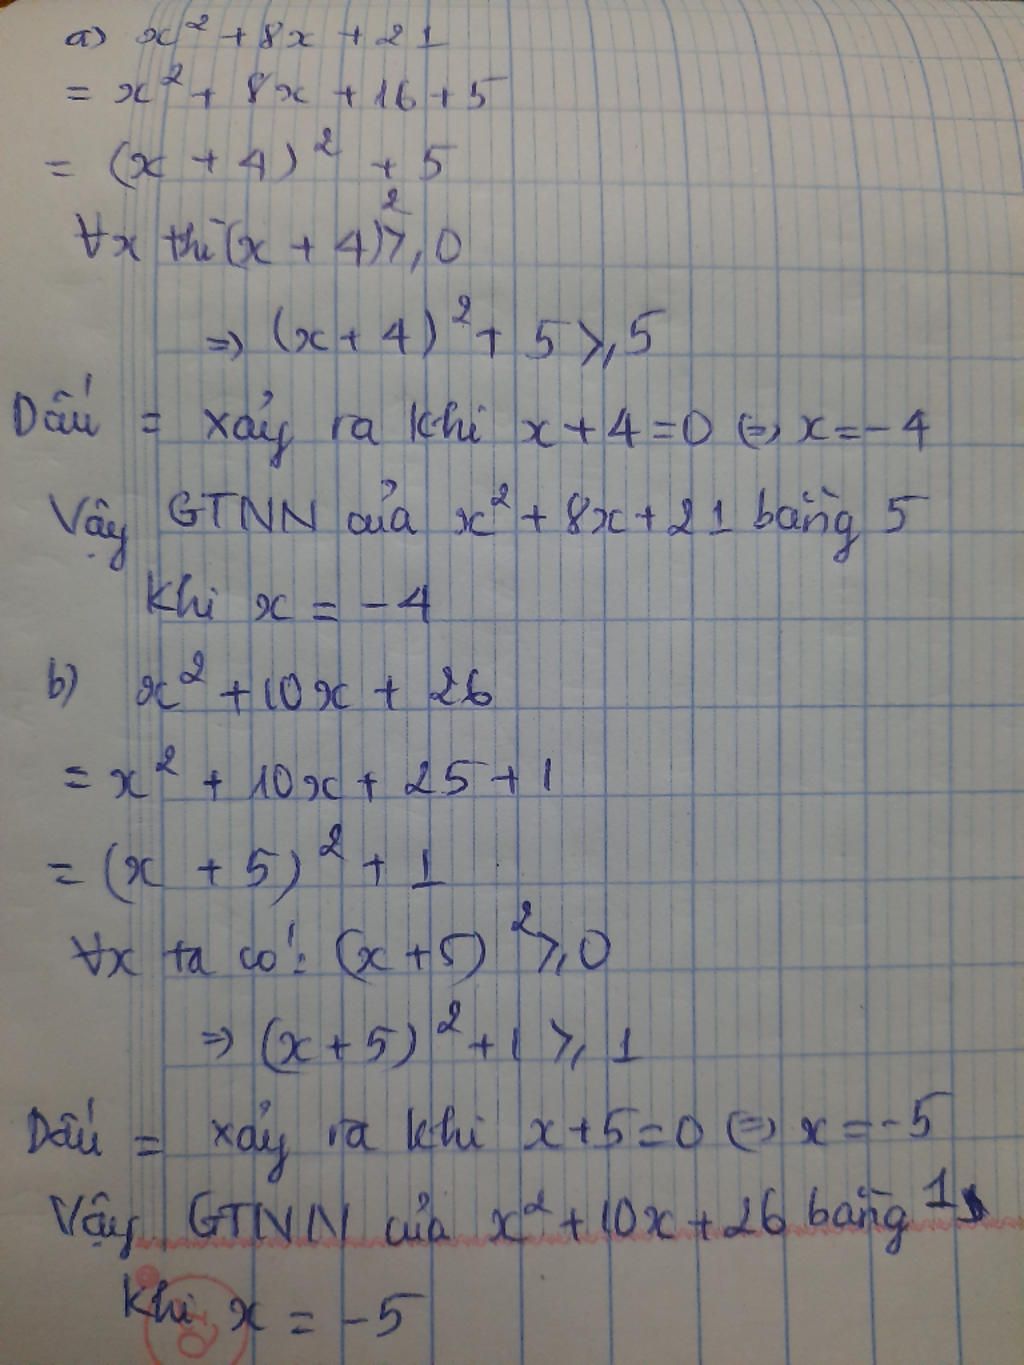 a) x² + 8x + 21
= x² + 8x + 16 + 5
= (x + 4)² + 5
∀x thì (x + 4)² ≥ 0
⇒ (x + 4)² + 5 ≥ 5
Dấu = xảy ra khi x + 4 = 0 ⇔ x = -4
Vậy GTNN của x² + 8x + 21 bằng 5
khi x = -4
b) x² + 10x + 26
= x² + 10x + 25 + 1
= (x + 5)² + 1
∀x ta có: (x + 5)² ≥ 0
⇒ (x + 5)² + 1 ≥ 1
Dấu = xảy ra khi x + 5 = 0 ⇔ x = -5
Vậy GTNN của x² + 10x + 26 bằng 1
khi x = -5